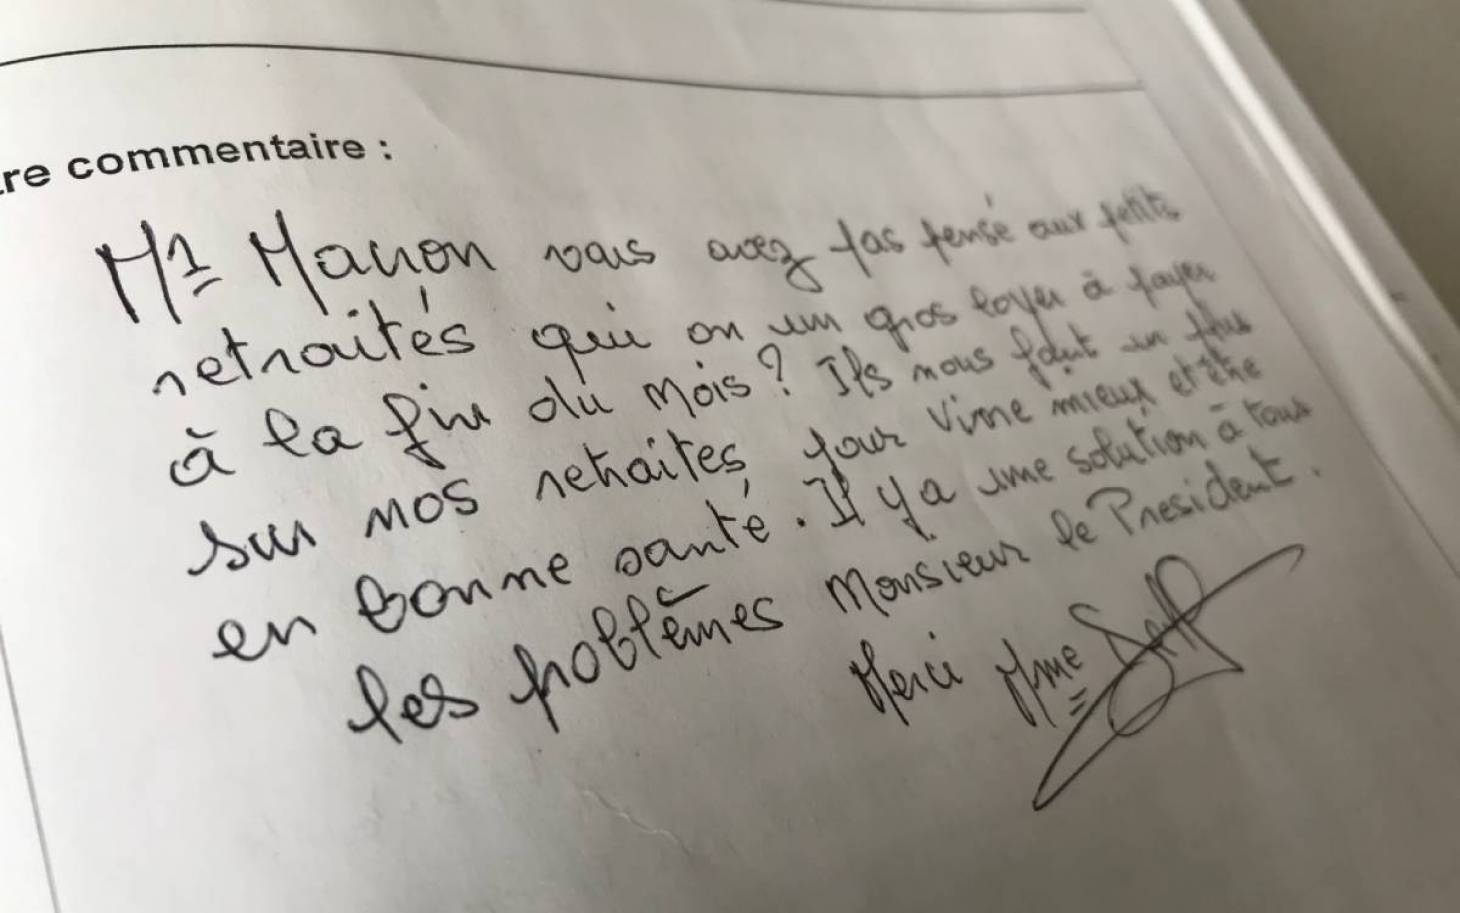 re commentaire :
Mr Macron vous avez pas pensé aux petits
retraités qui on un gros loyer à payer
à la fin du mois ? Ils nous faut un plus
sur nos retraites pour vivre mieux et être
en bonne santé. Il y a une solution à tous
les problèmes Monsieur le President.
Merci Mme